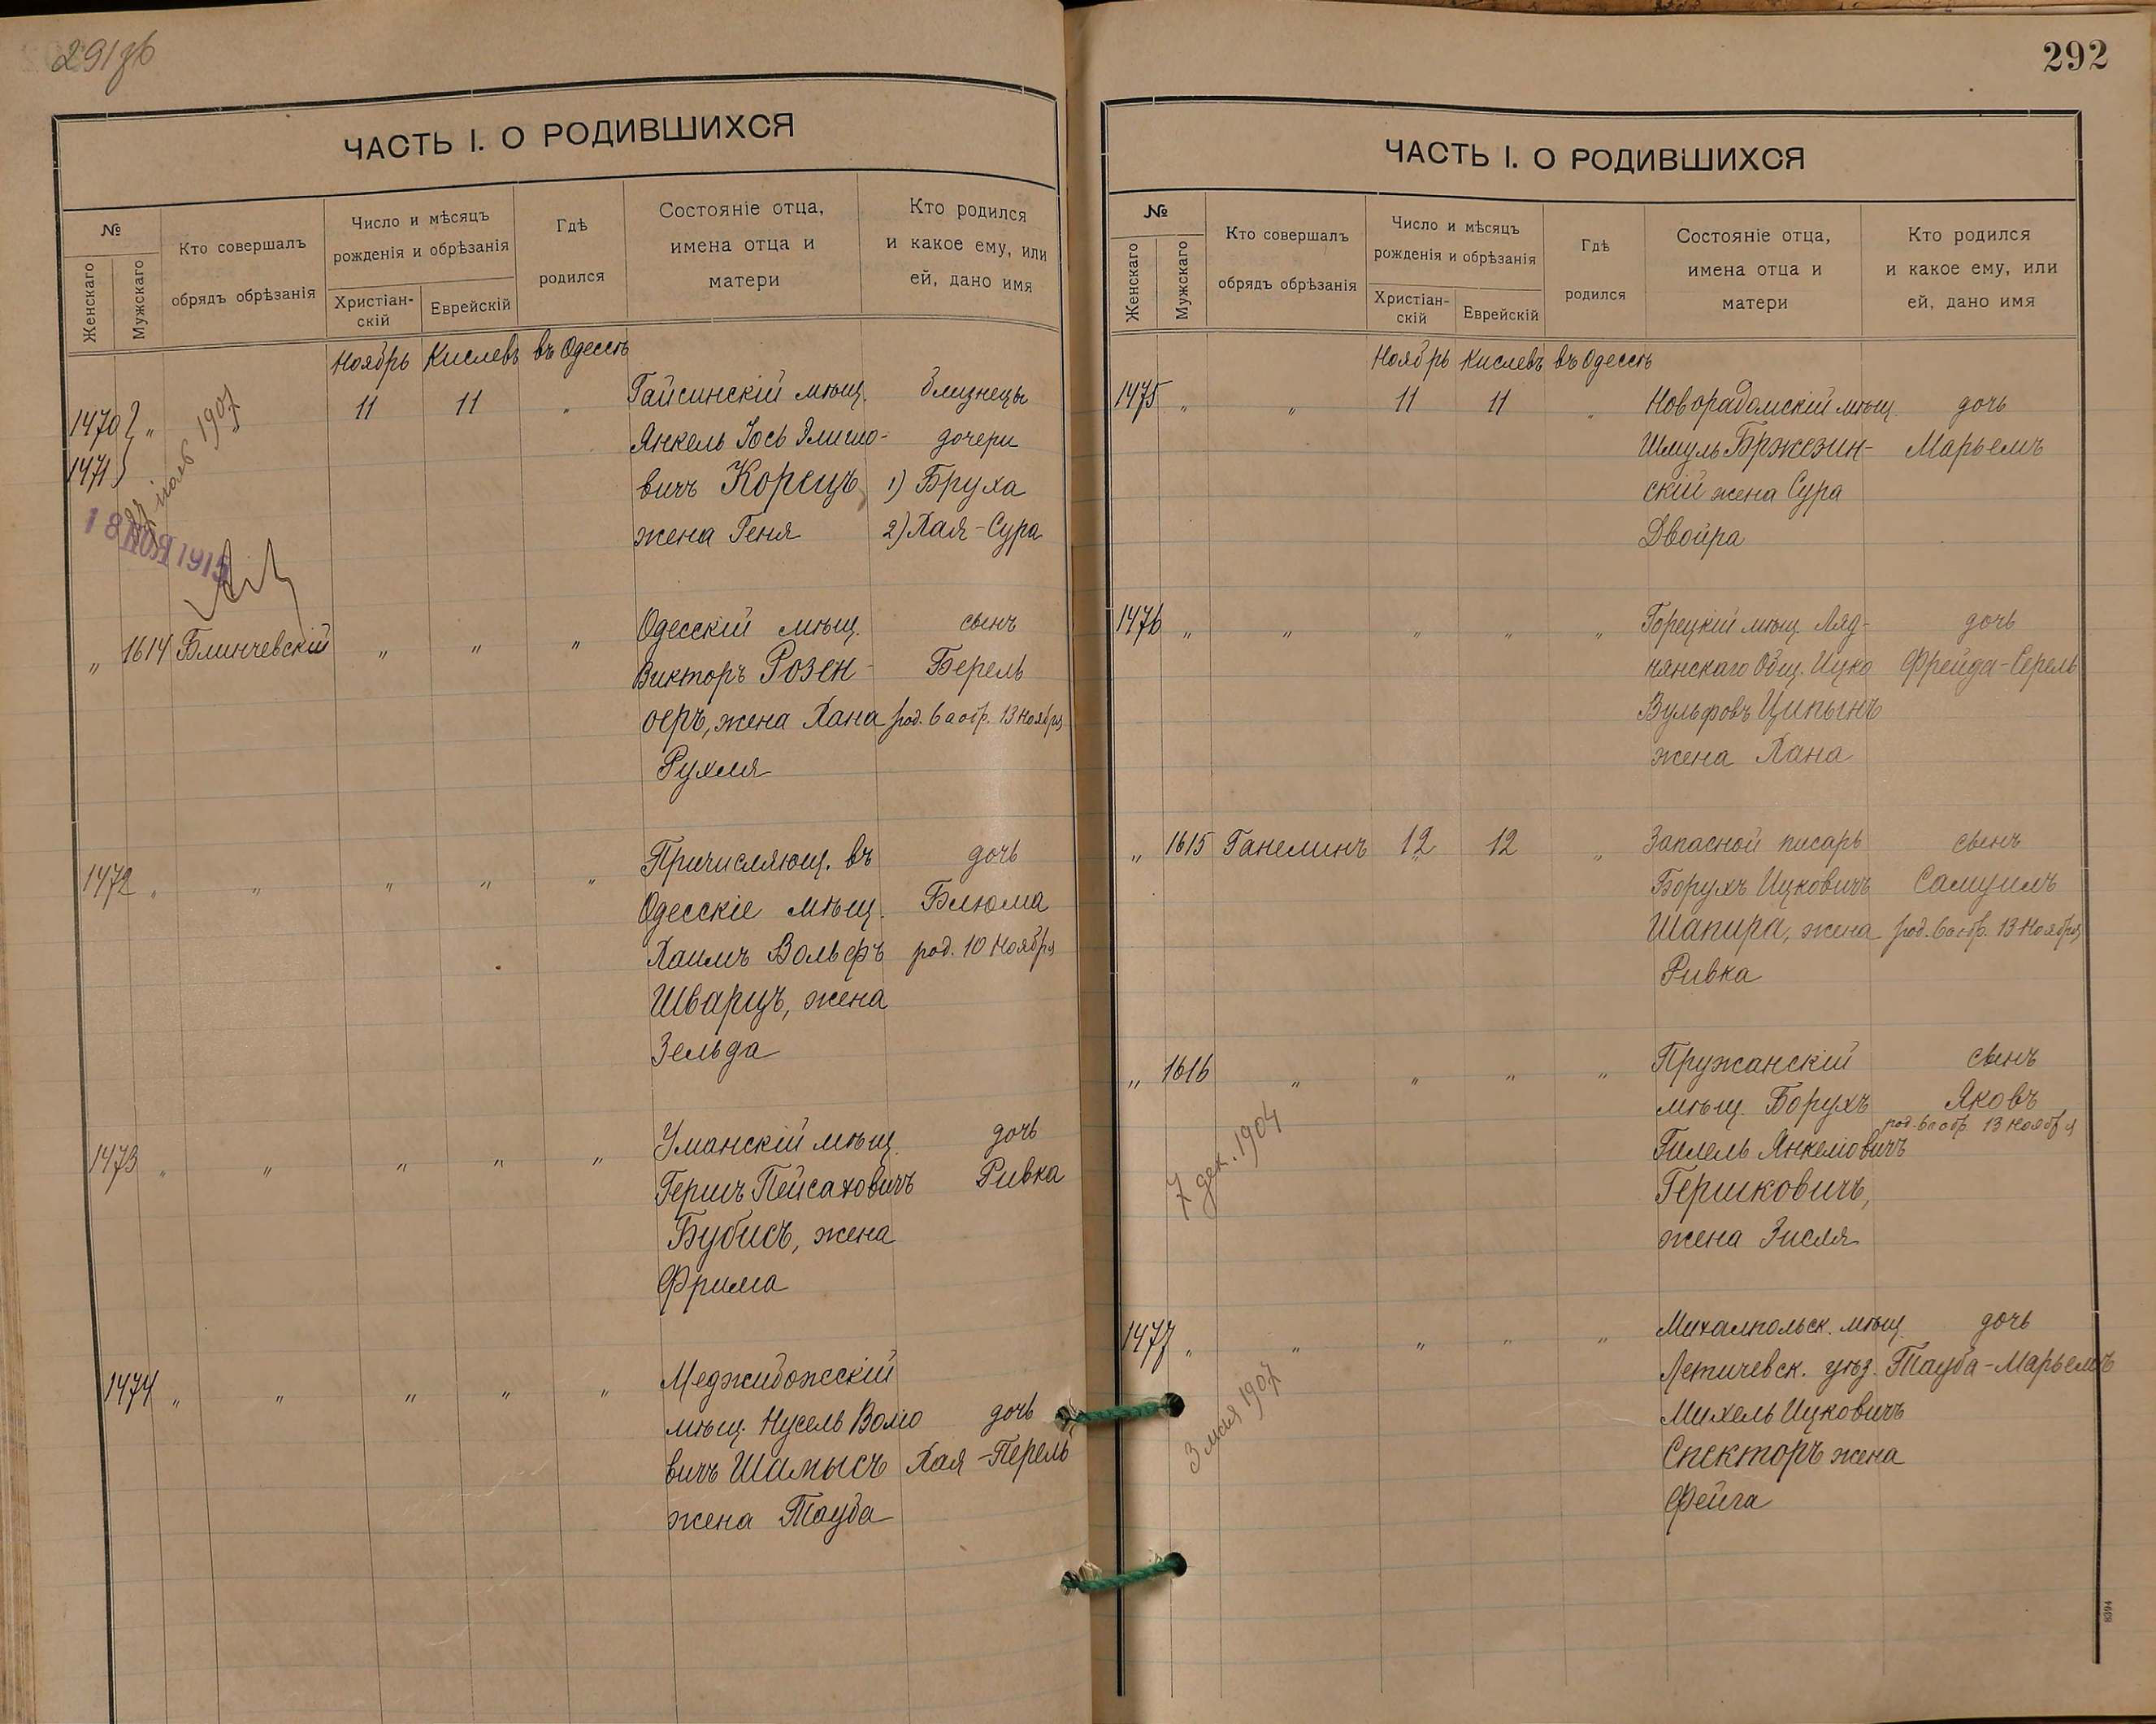 291об
ЧАСТЬ I. О РОДИВШИХСЯ
№
Женскаго
Мужскаго
Кто совершалъ
обрядъ обрѣзанія
Число и мѣсяцъ
рожденія и обрѣзанія
Христіан-
скій
Еврейскій
Гдѣ
родился
Состояніе отца,
имена отца и
матери
Кто родился
и какое ему, или
ей, дано имя
Ноябрь Кислевъ въ Одессѣ
1470 " 11 11 " Гайсинскій мѣщ. близнецы
1471 Янкель Іось дочери
вичъ Корецъ, 1) Бруха
жена Геня 2) Хая-Сура
1907
18 НОЯ 1915
" 1614 Блинчевскій " " " Одесскій мѣщ. сынъ
Викторъ Розен- Берель
оеръ, жена Хана род. 6 а обр. 13 Ноября
Рухля
1472 " " " " " Причисляющ. въ дочь
Одесскіе мѣщ. Блюма
Хаимъ Вольфъ род. 10 Ноября
Шварцъ, жена
Зельда
1473 " " " " " Уманскій мѣщ. дочь
Гершъ Пейсаховичъ Ривка
Бубисъ, жена
Фрима
1474 " " " " " Меджибожскій
мѣщ. Нусель Волю дочь
вичъ Шамысъ Хая-Перель
жена Тауба
292
ЧАСТЬ I. О РОДИВШИХСЯ
№
Женскаго
Мужскаго
Кто совершалъ
обрядъ обрѣзанія
Число и мѣсяцъ
рожденія и обрѣзанія
Христіан-
скій
Еврейскій
Гдѣ
родился
Состояніе отца,
имена отца и
матери
Кто родился
и какое ему, или
ей, дано имя
Ноябрь Кислевъ въ Одессѣ
1475 " " 11 11 " Новорадомскій мѣщ. дочь
Шмуль Бржезин- Марьемъ
скій жена Сура
Двойра
1476 " " " " " Горецкій мѣщ. Ляд- дочь
нянскаго Общ. Ицко Фрейда-Серель
Вульфовъ Ципынъ
жена Хана
" 1615 Ганелинъ 12 12 " Запасной писарь сынъ
Борухъ Ицковичъ Самуилъ
Шапира, жена род. 6 а обр. 13 Ноября
Ривка
" 1616 " " " " Пружанскій сынъ
мѣщ. Борухъ Яковъ
род. 6 а обр. 13 Ноября
Гилель Янкелювичъ
Гершковичъ,
жена Зисля
7 дек. 1904
1477 " " " " " Михалпольск. мѣщ. дочь
Летичевск. уѣз. Тауба-Марьемъ
Михель Ицковичъ
Спекторъ жена
Фейга
3 мая 1907
8394